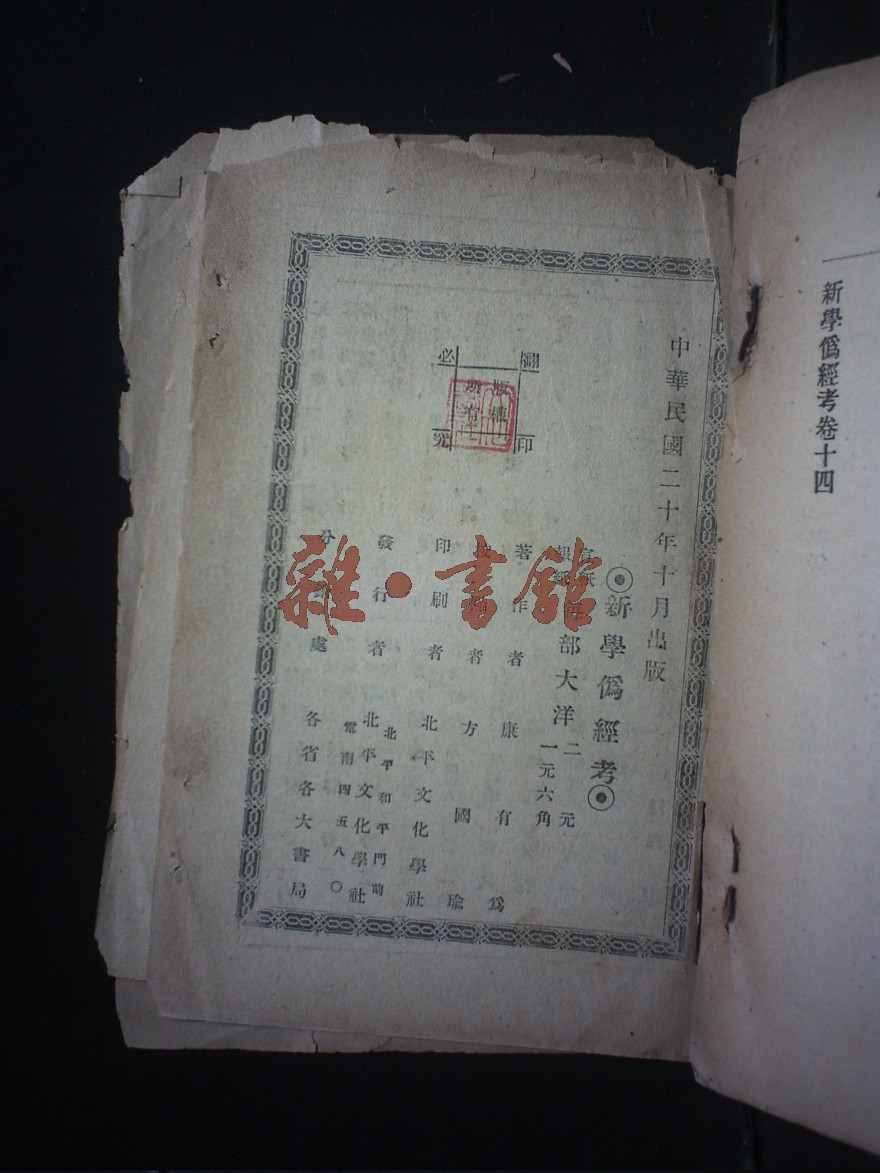 新學僞經考卷十四
中華民國二十年十月出版
新學僞經考
每部大洋
二元
一元六角
著作者 康有爲
者 方國瑜
印刷者 北平文化學社
發行者 北平文化學社
北平和平門前
電南四五八〇
分 處 各省各大書局
翻印必究
版權所有
雜·書館